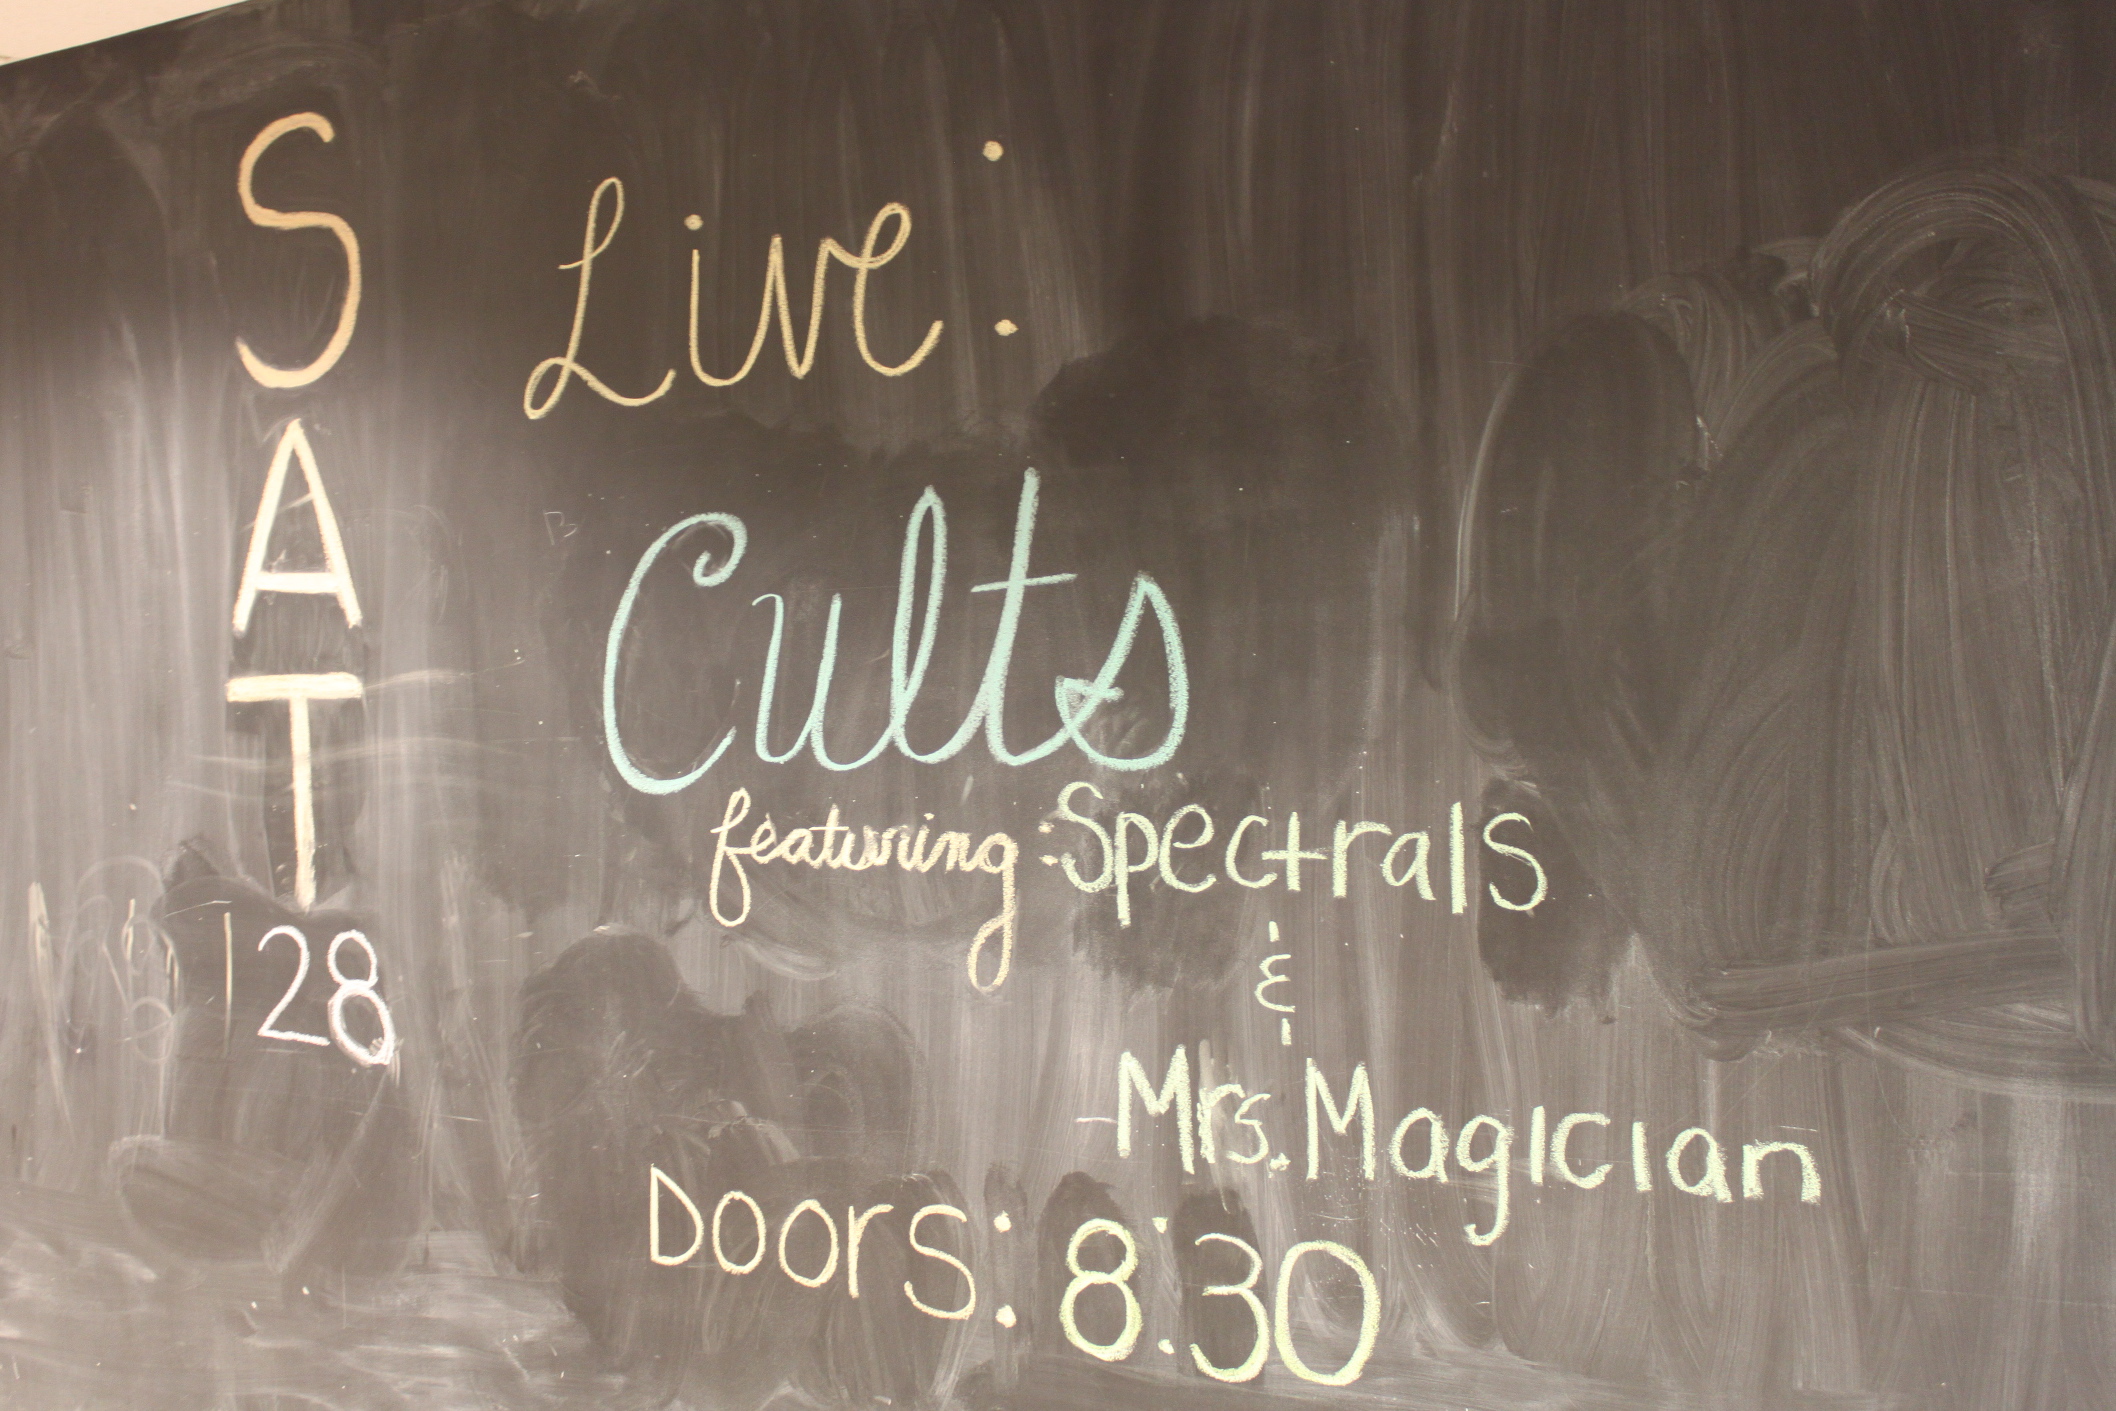 SAT
28
Live:
Cults
featuring: Spectrals
&
Mrs. Magician
Doors: 8:30